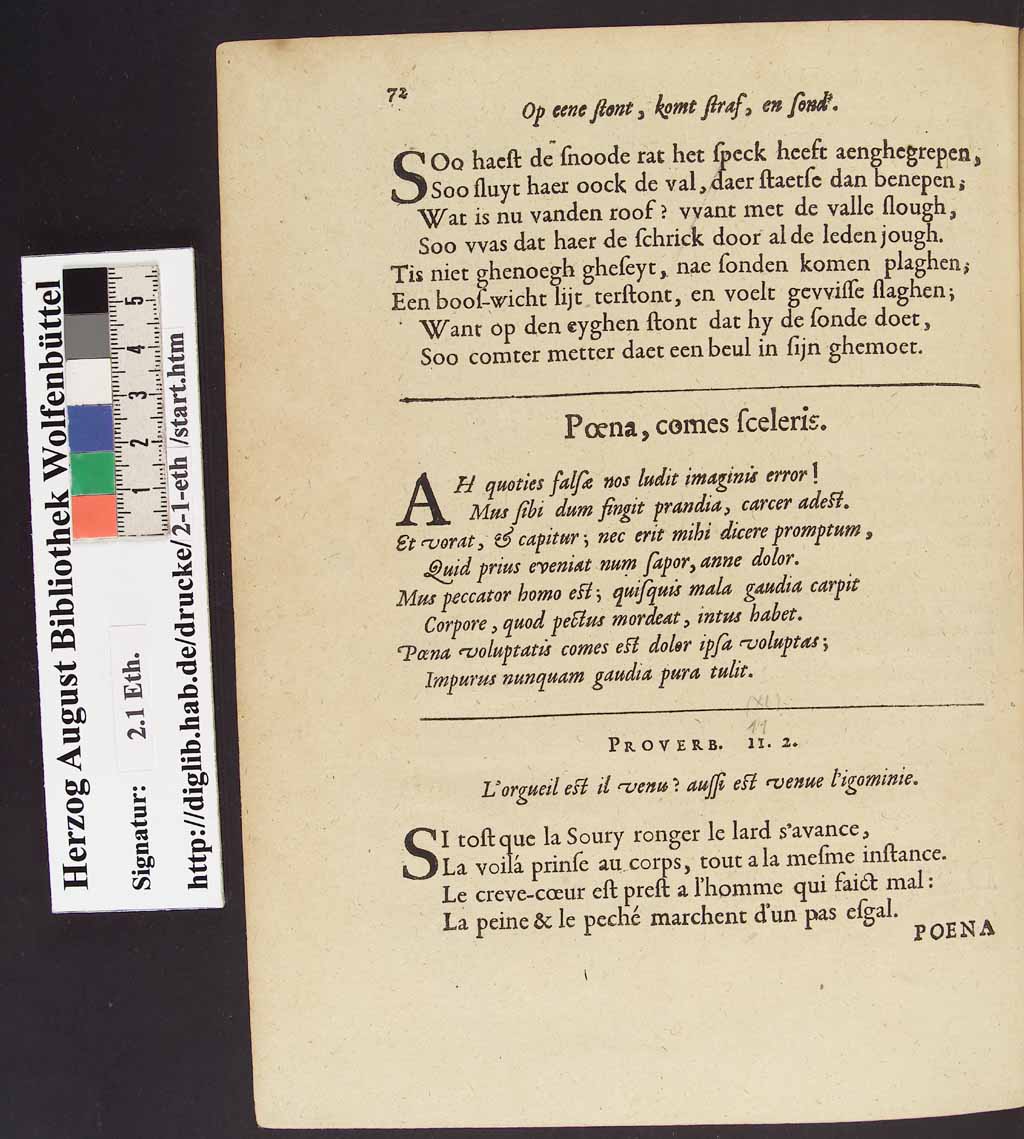 72
Op eene ſtont, komt ſtraf, en ſond'.
SOo haeſt de ſnoode rat het ſpeck heeft aenghegrepen,
Soo ſluyt haer oock de val, daer ſtaetſe dan benepen;
Wat is nu vanden roof? vvant met de valle ſlough,
Soo vvas dat haer de ſchrick door al de leden jough.
Tis niet ghenoegh gheſeyt, nae ſonden komen plaghen;
Een booſ-wicht lijt terſtont, en voelt gevviſſe ſlaghen;
Want op den eyghen ſtont dat hy de ſonde doet,
Soo comter metter daet een beul in ſijn ghemoet.
Pœna, comes ſceleris.
AH quoties falſæ nos ludit imaginis error!
Mus ſibi dum fingit prandia, carcer adeſt.
Et vorat, & capitur; nec erit mihi dicere promptum,
Quid prius eveniat num ſapor, anne dolor.
Mus peccator homo eſt; quiſquis mala gaudia carpit
Corpore, quod pectus mordeat, intus habet.
Pœna voluptatis comes eſt dolor ipſa voluptas;
Impurus nunquam gaudia pura tulit.
(XI)
11
PROVERB. II. 2.
L'orgueil eſt il venu? auſſi eſt venue l'igominie.
SI toſt que la Soury ronger le lard s'avance,
La voilá prinſe au corps, tout a la meſme inſtance.
Le creve-cœur eſt preſt a l'homme qui faict mal:
La peine & le peché marchent d'un pas eſgal.
POENA
Herzog August Bibliothek Wolfenbüttel
Signatur: 2.1 Eth.
http://diglib.hab.de/drucke/2-1-eth /start.htm
1 2 3 4 5